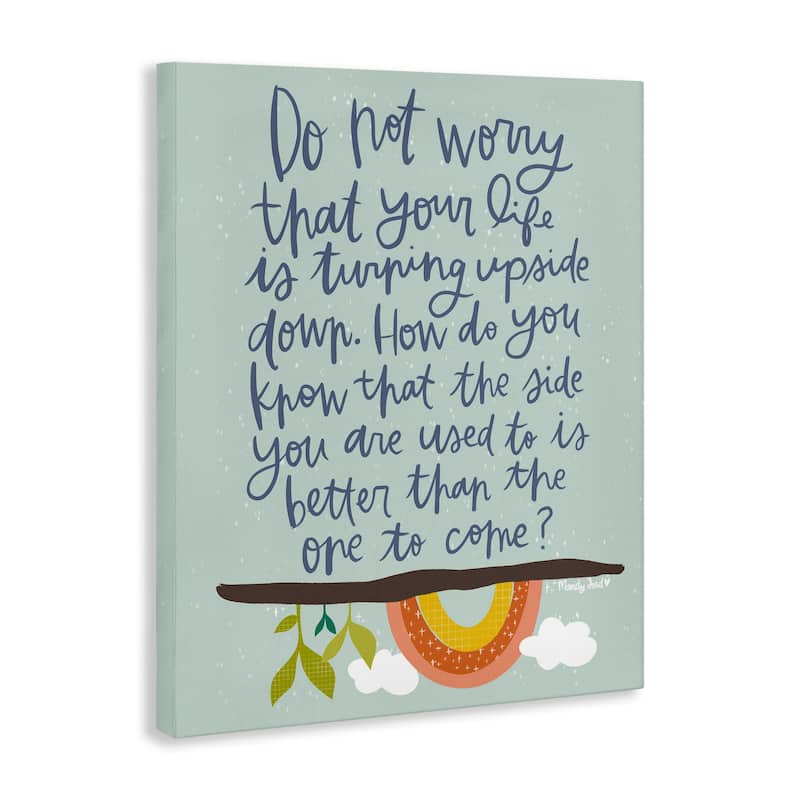 Do not worry
that your life
is turning upside
down. How do you
know that the side
you are used to is
better than the
one to come?